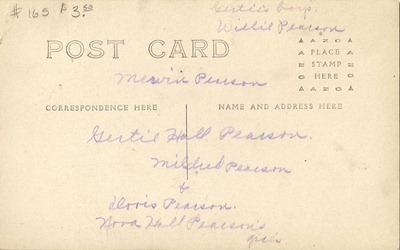 # 165 $3.50
Gertie's
Willie Pearson
POST CARD
AAZO
PLACE
STAMP
HERE
AAZO
Mervin Pearson
CORRESPONDENCE HERE
NAME AND ADDRESS HERE
Gertie Hall Pearson.
Mildred Pearson
&
Dloris Pearson.
Nora Hall Pearson's